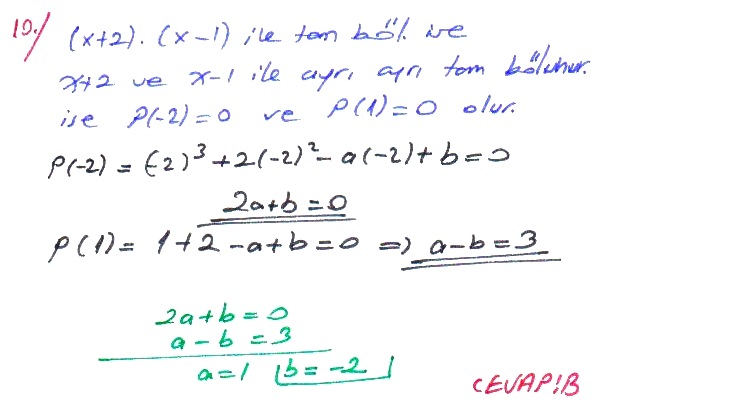 10./ (x+2).(x-1) ile tam böl. ise
x+2 ve x-1 ile ayrı ayrı tam bölünür.
ise P(-2)=0 ve P(1)=0 olur.
P(-2) = (-2)³+2(-2)²-a(-2)+b=0
2a+b=0
P(1)= 1+2-a+b=0 => a-b=3
2a+b=0
a-b=3
a=1 b=-2
CEVAP:B